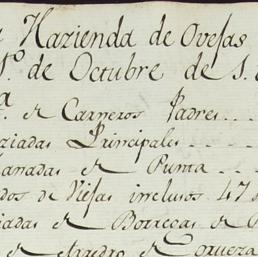 Hazienda de Ovejas
1º. de Octubre de
de Carneros Padres
ziadas Principales
anadas de Punta
dos de Viejas inclusos 47
iadas de Borregas de